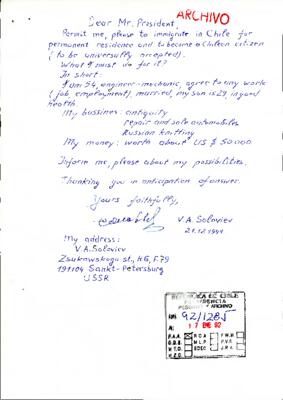 ARCHIVO
Dear Mr. President,
Permit me, please to immigrate in Chile for
permanent residence and to become a Chileen citizen
(to be universally accepted).
What I must do for it?
In short:
I am 54, engineer-mechanic, agree to any work
(job, employment), married, my son is 29, in good
health.
My bussines: antiquity
repair and sale automobiles
Russian knitting
My money: worth about US $ 50000.
Inform me, please about my possibilities.
Thanking you in anticipation of answer.
Yours faithfully,
V.A. Soloviev
21.12.1991
My address:
V.A. Soloviev
Zsukowskogo st., H6, F.79
191104 Sankt-Petersburg
USSR
REPUBLICA DE CHILE
PRESIDENCIA
ARCHIVO
92/1285
A: 17 ENE 92
P.A.A. R.C.A. F.W.M.
C.B.E. M.L.P. P.V.S.
M.T.O. EDEC J.R.A.
M.Z.C.